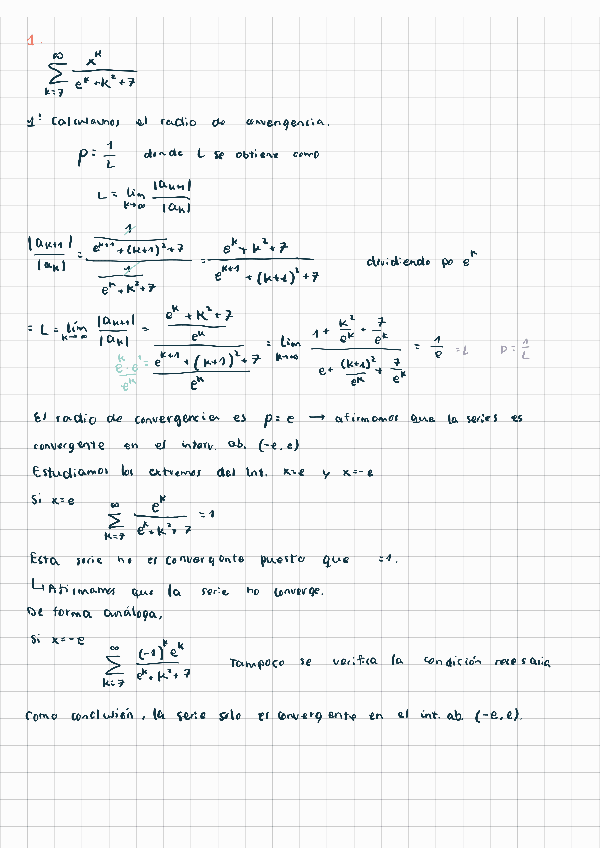 1.
∞ Σ k=7 x^k / (e^k + k² + 7)
1º Calculamos el radio de convergencia.
ρ = 1/L donde L se obtiene como
L = lím k→∞ |a_k+1| / |a_k|
|a_k+1| / |a_k| = (1 / (e^(k+1) + (k+1)² + 7)) / (1 / (e^k + k² + 7)) = (e^k + k² + 7) / (e^(k+1) + (k+1)² + 7) dividiendo po e^k
= L = lím k→∞ |a_k+1| / |a_k| = ((e^k + k² + 7) / e^k) / ((e^(k+1) + (k+1)² + 7) / e^k) = lím k→∞ (1 + k²/e^k + 7/e^k) / (e + (k+1)²/e^k + 7/e^k) = 1/e = L ρ = 1/L
e^k · e¹ / e^k
El radio de convergencia es ρ = e → afirmamos que la series es
convergente en el interv. ab. (-e, e)
Estudiamos los extremos del Int. x=e y x=-e
Si x=e
∞ Σ k=7 e^k / (e^k + k² + 7) = 1
Esta serie no es convergente puesto que =1.
↳ Afirmamos que la serie no converge.
De forma análoga,
Si x=-e
∞ Σ k=7 (-1)^k e^k / (e^k + k² + 7) Tampoco se verifica la condición necesaria
Como conclusión, la serie solo es convergente en el int. ab. (-e, e).